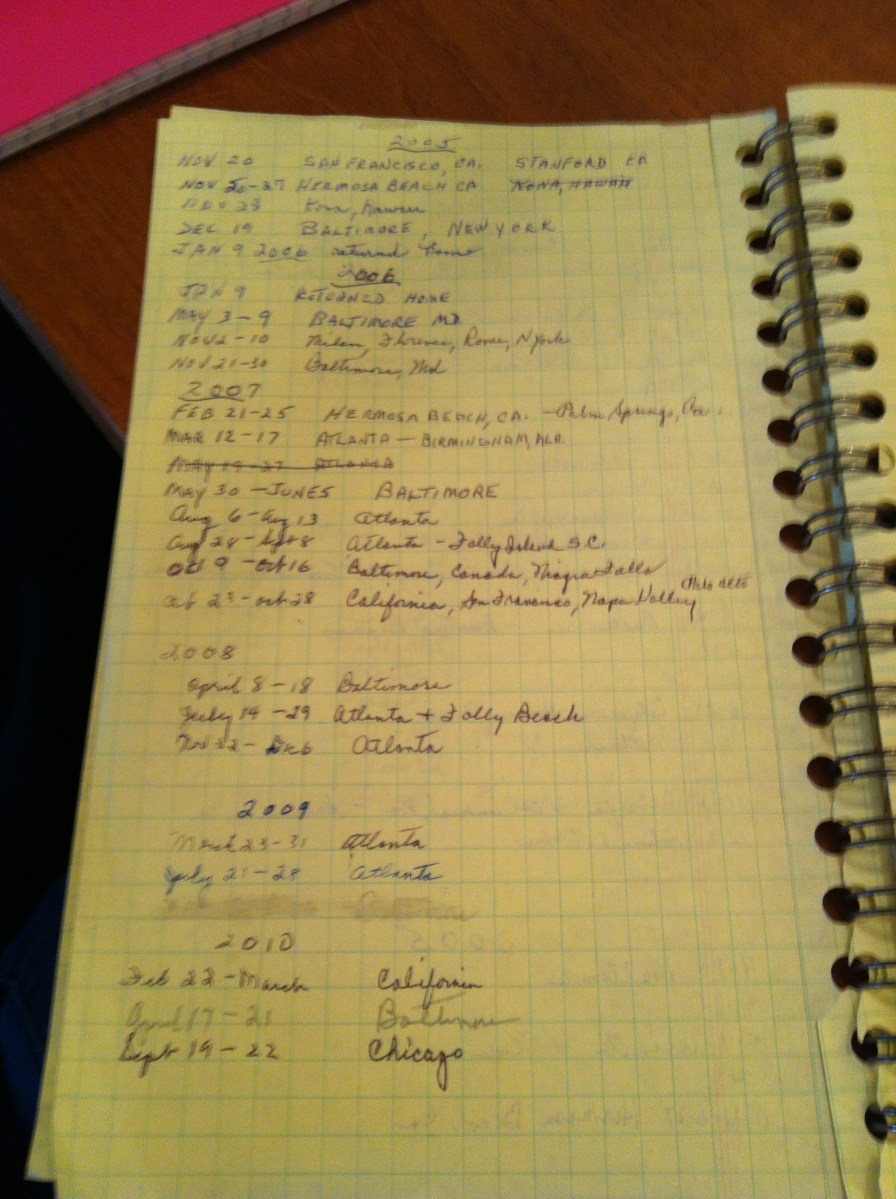 2005
NOV 20 SAN FRANCISCO, CA. STANFORD CA
NOV 20-27 HERMOSA BEACH CA KONA, HAWAII
NOV 28 Kona, Hawaii
DEC 19 BALTIMORE, NEW YORK
JAN 9 2006 returned home
2006
JAN 9 RETURNED HOME
MAY 3-9 BALTIMORE MD
NOV 2-10 Milan, Florence, Rome, N York
NOV 21-30 Baltimore, Md
2007
FEB 21-25 HERMOSA BEACH, CA. - Palm Springs, Ca.
MAR 12-17 ATLANTA - BIRMINGHAM, ALA.
MAY 19-27 ATLANTA
MAY 30 - JUNE 5 BALTIMORE
Aug 6 - Aug 13 Atlanta
Aug 28 - Sept 8 Atlanta - Folly Island S.C.
Oct 9 - Oct 16 Baltimore, Canada, Niagra Falls
Oct 23 - Oct 28 California, San Francisco, Napa Valley, Palo Alto
2008
April 8-18 Baltimore
July 14-29 Atlanta + Folly Beach
Nov 22 - Dec 6 Atlanta
2009
March 23-31 Atlanta
July 21-28 Atlanta
2010
Feb 22 - March California
April 17-21 Baltimore
Sept 19-22 Chicago